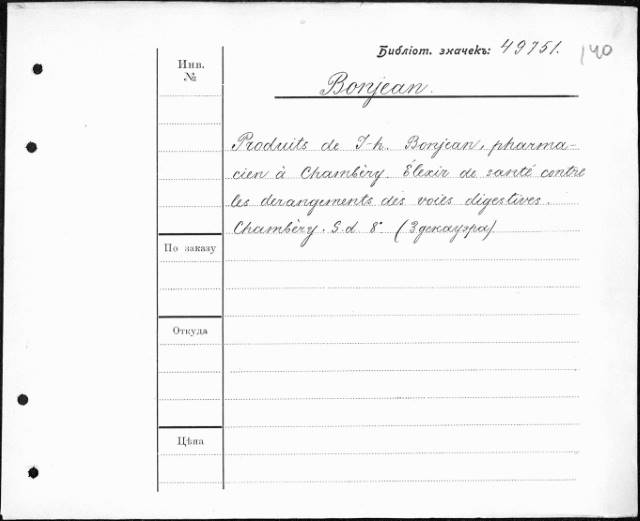 Библіот. значекъ: 49751. 140
Инв.
№
Bonjean.
Produits de J-h. Bonjean, pharma-
cien à Chambéry. Élexir de santé contre
les derangements des voies digestives.
Chambéry. S.d 8° (3 декауэра)
По заказу
Откуда
Цѣна